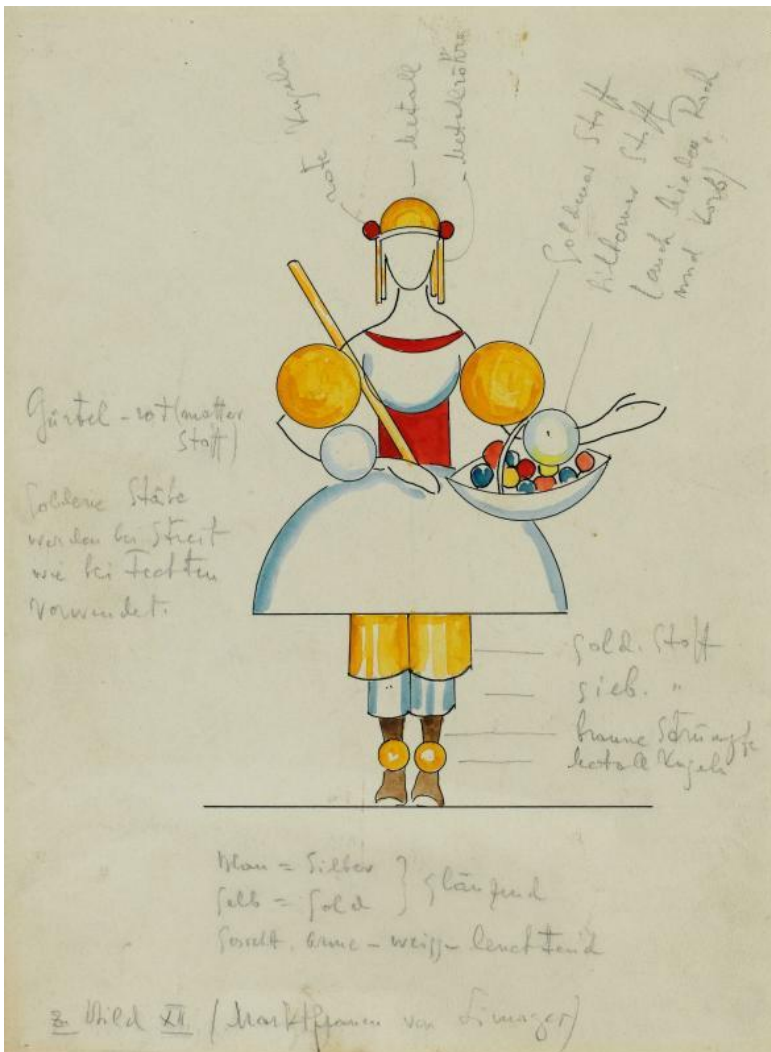 rote Kugeln
– Metall
– Metallröhre
Goldener Stoff
Silberner Stoff
(auch Mieder, Rock
und Korb)
Gürtel – rot (matter
Stoff)
Goldene Stäbe
werden bei Streit
wie bei Fechten
verwendet.
Gold. Stoff
"
braune Strümpfe
Metall Kugeln
Blau = Silber
Gelb = Gold } glänzend
Gesicht, Arme – weiss – leuchtend
z. Bild XII (Marktfrauen von Limoges)